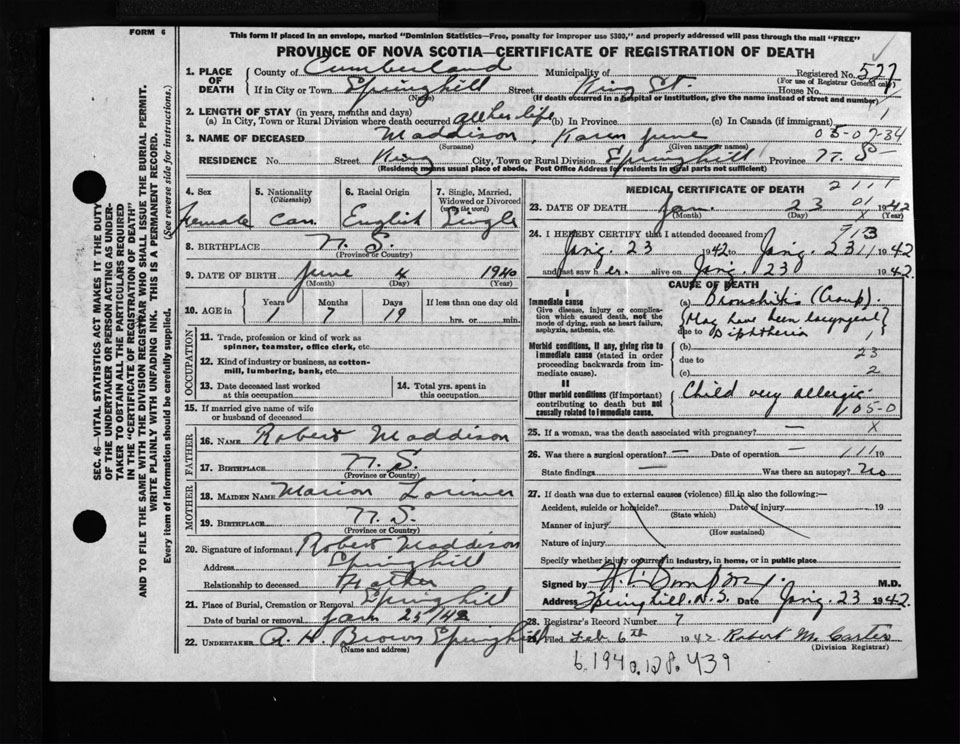 FORM 6
This form if placed in an envelope, marked "Dominion Statistics—Free, penalty for improper use $300," and properly addressed will pass through the mail "FREE"
PROVINCE OF NOVA SCOTIA—CERTIFICATE OF REGISTRATION OF DEATH
SEC. 46—VITAL STATISTICS ACT MAKES IT THE DUTY
OF THE UNDERTAKER OR PERSON ACTING AS UNDER-
TAKER TO OBTAIN ALL THE PARTICULARS REQUIRED
IN THE "CERTIFICATE OF REGISTRATION OF DEATH"
AND TO FILE THE SAME WITH THE DIVISION REGISTRAR WHO SHALL ISSUE THE BURIAL PERMIT.
WRITE PLAINLY WITH UNFADING INK. THIS IS A PERMANENT RECORD.
Every item of information should be carefully supplied. (See reverse side for instructions.)
1. PLACE OF DEATH
County of Cumberland Municipality of Registered No. 527
(For use of Registrar General only)
If in City or Town Springhill Street King St. House No.
(Name) (If death occurred in a hospital or institution, give the name instead of street and number)
2. LENGTH OF STAY (in years, months and days)
(a) In City, Town or Rural Division where death occurred all her life (b) In Province (c) In Canada (if immigrant) 1
3. NAME OF DECEASED Maddison, Karen June 05-07-34
(Surname) (Given name or names)
RESIDENCE No. Street King City, Town or Rural Division Springhill Province N. S.
(Residence means usual place of abode. Post Office Address for residents in rural parts not sufficient)
4. Sex
Female
5. Nationality
(Citizenship)
Can
6. Racial Origin
English
7. Single, Married,
Widowed or Divorced
(write the word)
Single
8. BIRTHPLACE N. S.
(Province or Country)
9. DATE OF BIRTH June 4 1940
(Month) (Day) (Year)
10. AGE in
Years Months Days If less than one day old
1 7 19 hrs. or min.
OCCUPATION
11. Trade, profession or kind of work as
spinner, teamster, office clerk, etc.
12. Kind of industry or business, as cotton-
mill, lumbering, bank, etc.
13. Date deceased last worked
at this occupation
14. Total yrs. spent in
this occupation
15. If married give name of wife
or husband of deceased
FATHER
16. NAME Robert Maddison
17. BIRTHPLACE N. S.
(Province or Country)
MOTHER
18. MAIDEN NAME Marion Lorimer
19. BIRTHPLACE N. S.
(Province or Country)
20. Signature of informant Robert Maddison
Address Springhill
Relationship to deceased Father
21. Place of Burial, Cremation or Removal Springhill
Date of burial or removal Jan 25/42
22. UNDERTAKER A. H. Brown Springhill
(Name and address)
MEDICAL CERTIFICATE OF DEATH 2111
23. DATE OF DEATH Jan. 23 01 1942
(Month) (Day) X (Year)
24. I HEREBY CERTIFY that I attended deceased from: 913
Jan. 23 1942 to Jan. 23 1942
and last saw her alive on Jan. 23 1942.
CAUSE OF DEATH
I
Immediate cause
Give disease, injury or complica-
tion which caused death, not the
mode of dying, such as heart failure,
asphyxia, asthenia, etc.
(a) Bronchitis (Croup).
(May have been laryngeal
due to Diphtheria
Morbid conditions, if any, giving rise to
immediate cause (stated in order
proceeding backwards from im-
mediate cause).
(b) 23
due to
(c) 2
II
Other morbid conditions (if important)
contributing to death but not
causally related to immediate cause.
Child very allergic
105-0
25. If a woman, was the death associated with pregnancy? — X
26. Was there a surgical operation? — Date of operation — 111 19
State findings — Was there an autopsy? No
27. If death was due to external causes (violence) fill in also the following:—
Accident, suicide or homicide? Date of injury 19
(State which)
Manner of injury
(How sustained)
Nature of injury
Specify whether injury occurred in industry, in home, or in public place
Signed by M.D.
Address Springhill. N.S. Date Jan. 23 1942.
28. Registrar's Record Number 7
29. Filed Feb 6th 1942 Robert M. Carter
(Division Registrar)
6.1940.128.439